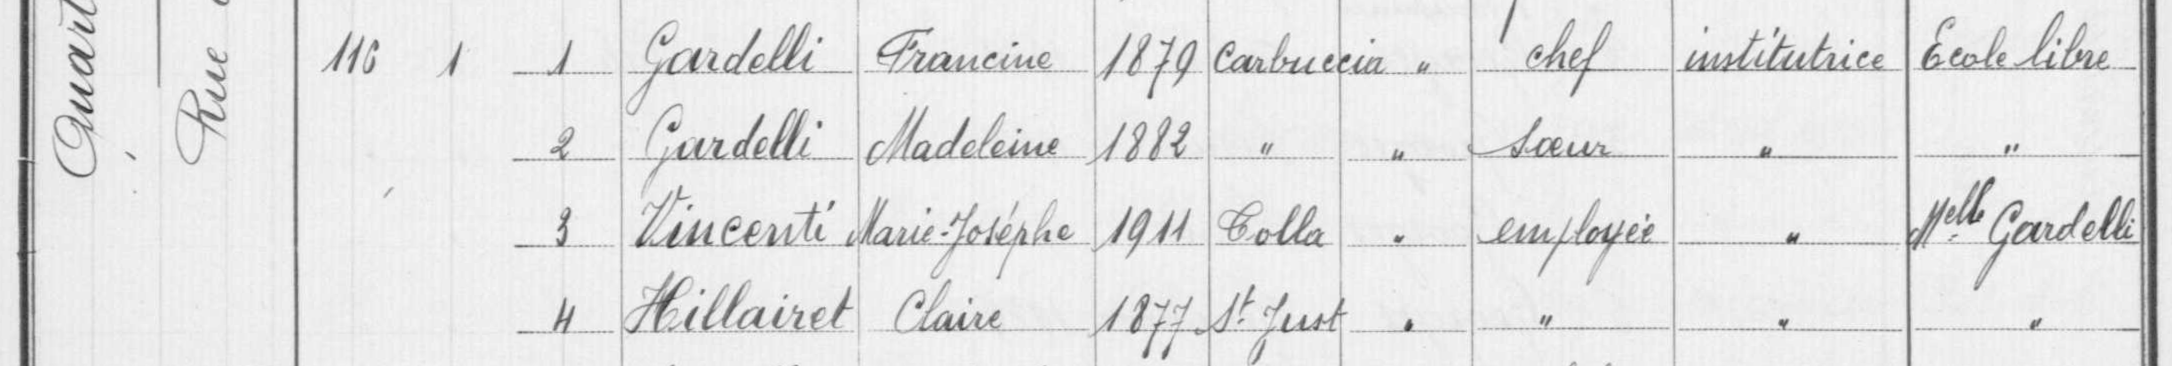 Quart
Rue
116 1 1 Gardelli Francine 1879 Carbuccia " chef institutrice Ecole libre
2 Gardelli Madeleine 1882 " " sœur " "
3 Vincenti Marie-Josèphe 1911 Tolla " employée " Melle Gardelli
4 Hillairet Claire 1877 St Just " " " "